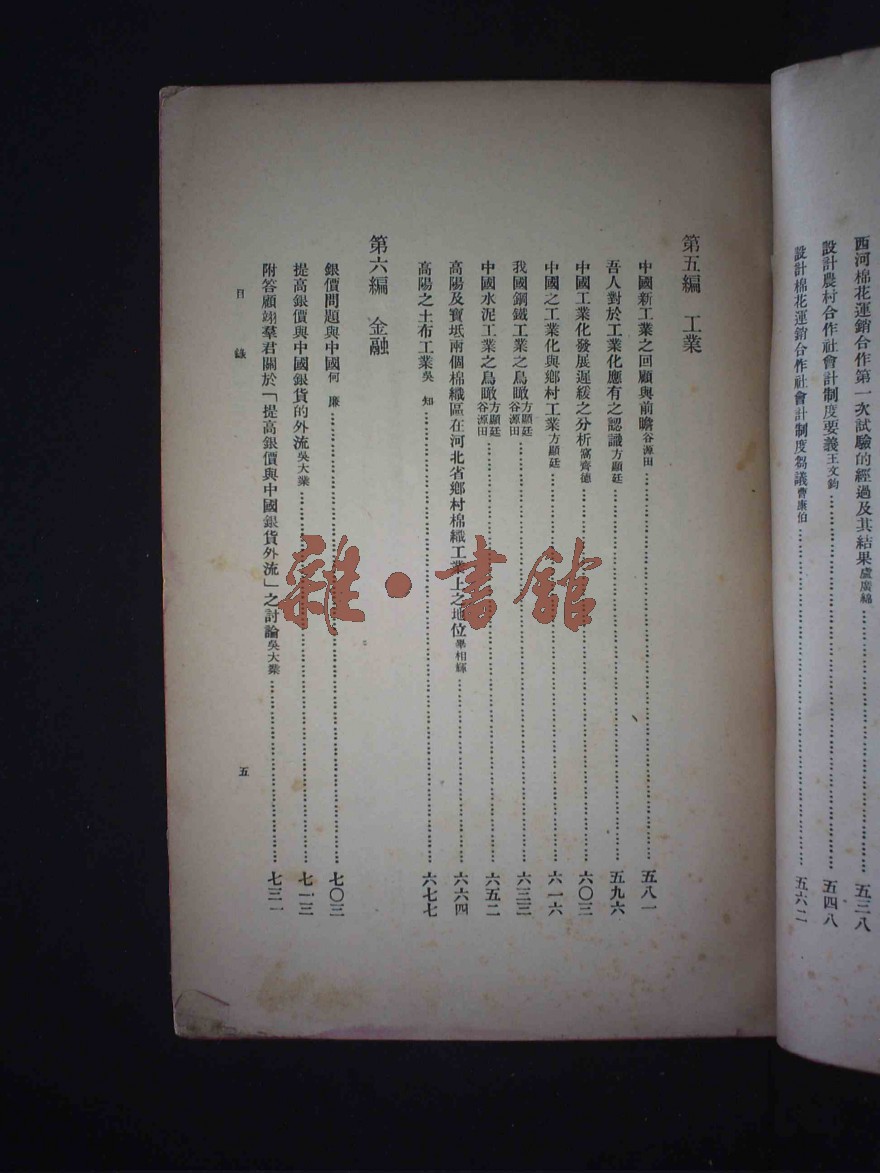 西河棉花運銷合作第一次試驗的經過及其結果 盧廣綿……五三八
設計農村合作社會計制度要義 王文鈞……五四八
設計棉花運銷合作社會計制度芻議 曹康伯……五六二
第五編 工業
中國新工業之回顧與前瞻 谷源田……五八一
吾人對於工業化應有之認識 方顯廷……五九六
中國工業化發展遲緩之分析 甯齊德……六〇三
中國之工業化與鄉村工業 方顯廷……六一六
我國鋼鐵工業之鳥瞰 方顯廷 谷源田……六三三
中國水泥工業之鳥瞰 方顯廷 谷源田……六五二
高陽及寶坻兩個棉織區在河北省鄉村棉織工業上之地位 畢相輝……六六四
高陽之土布工業 吳知……六七七
第六編 金融
銀價問題與中國 何廉……七〇三
提高銀價與中國銀貨的外流 吳大業……七一三
附答顧翊羣君關於「提高銀價與中國銀貨外流」之討論 吳大業……七三一
目錄
五
雜·書館